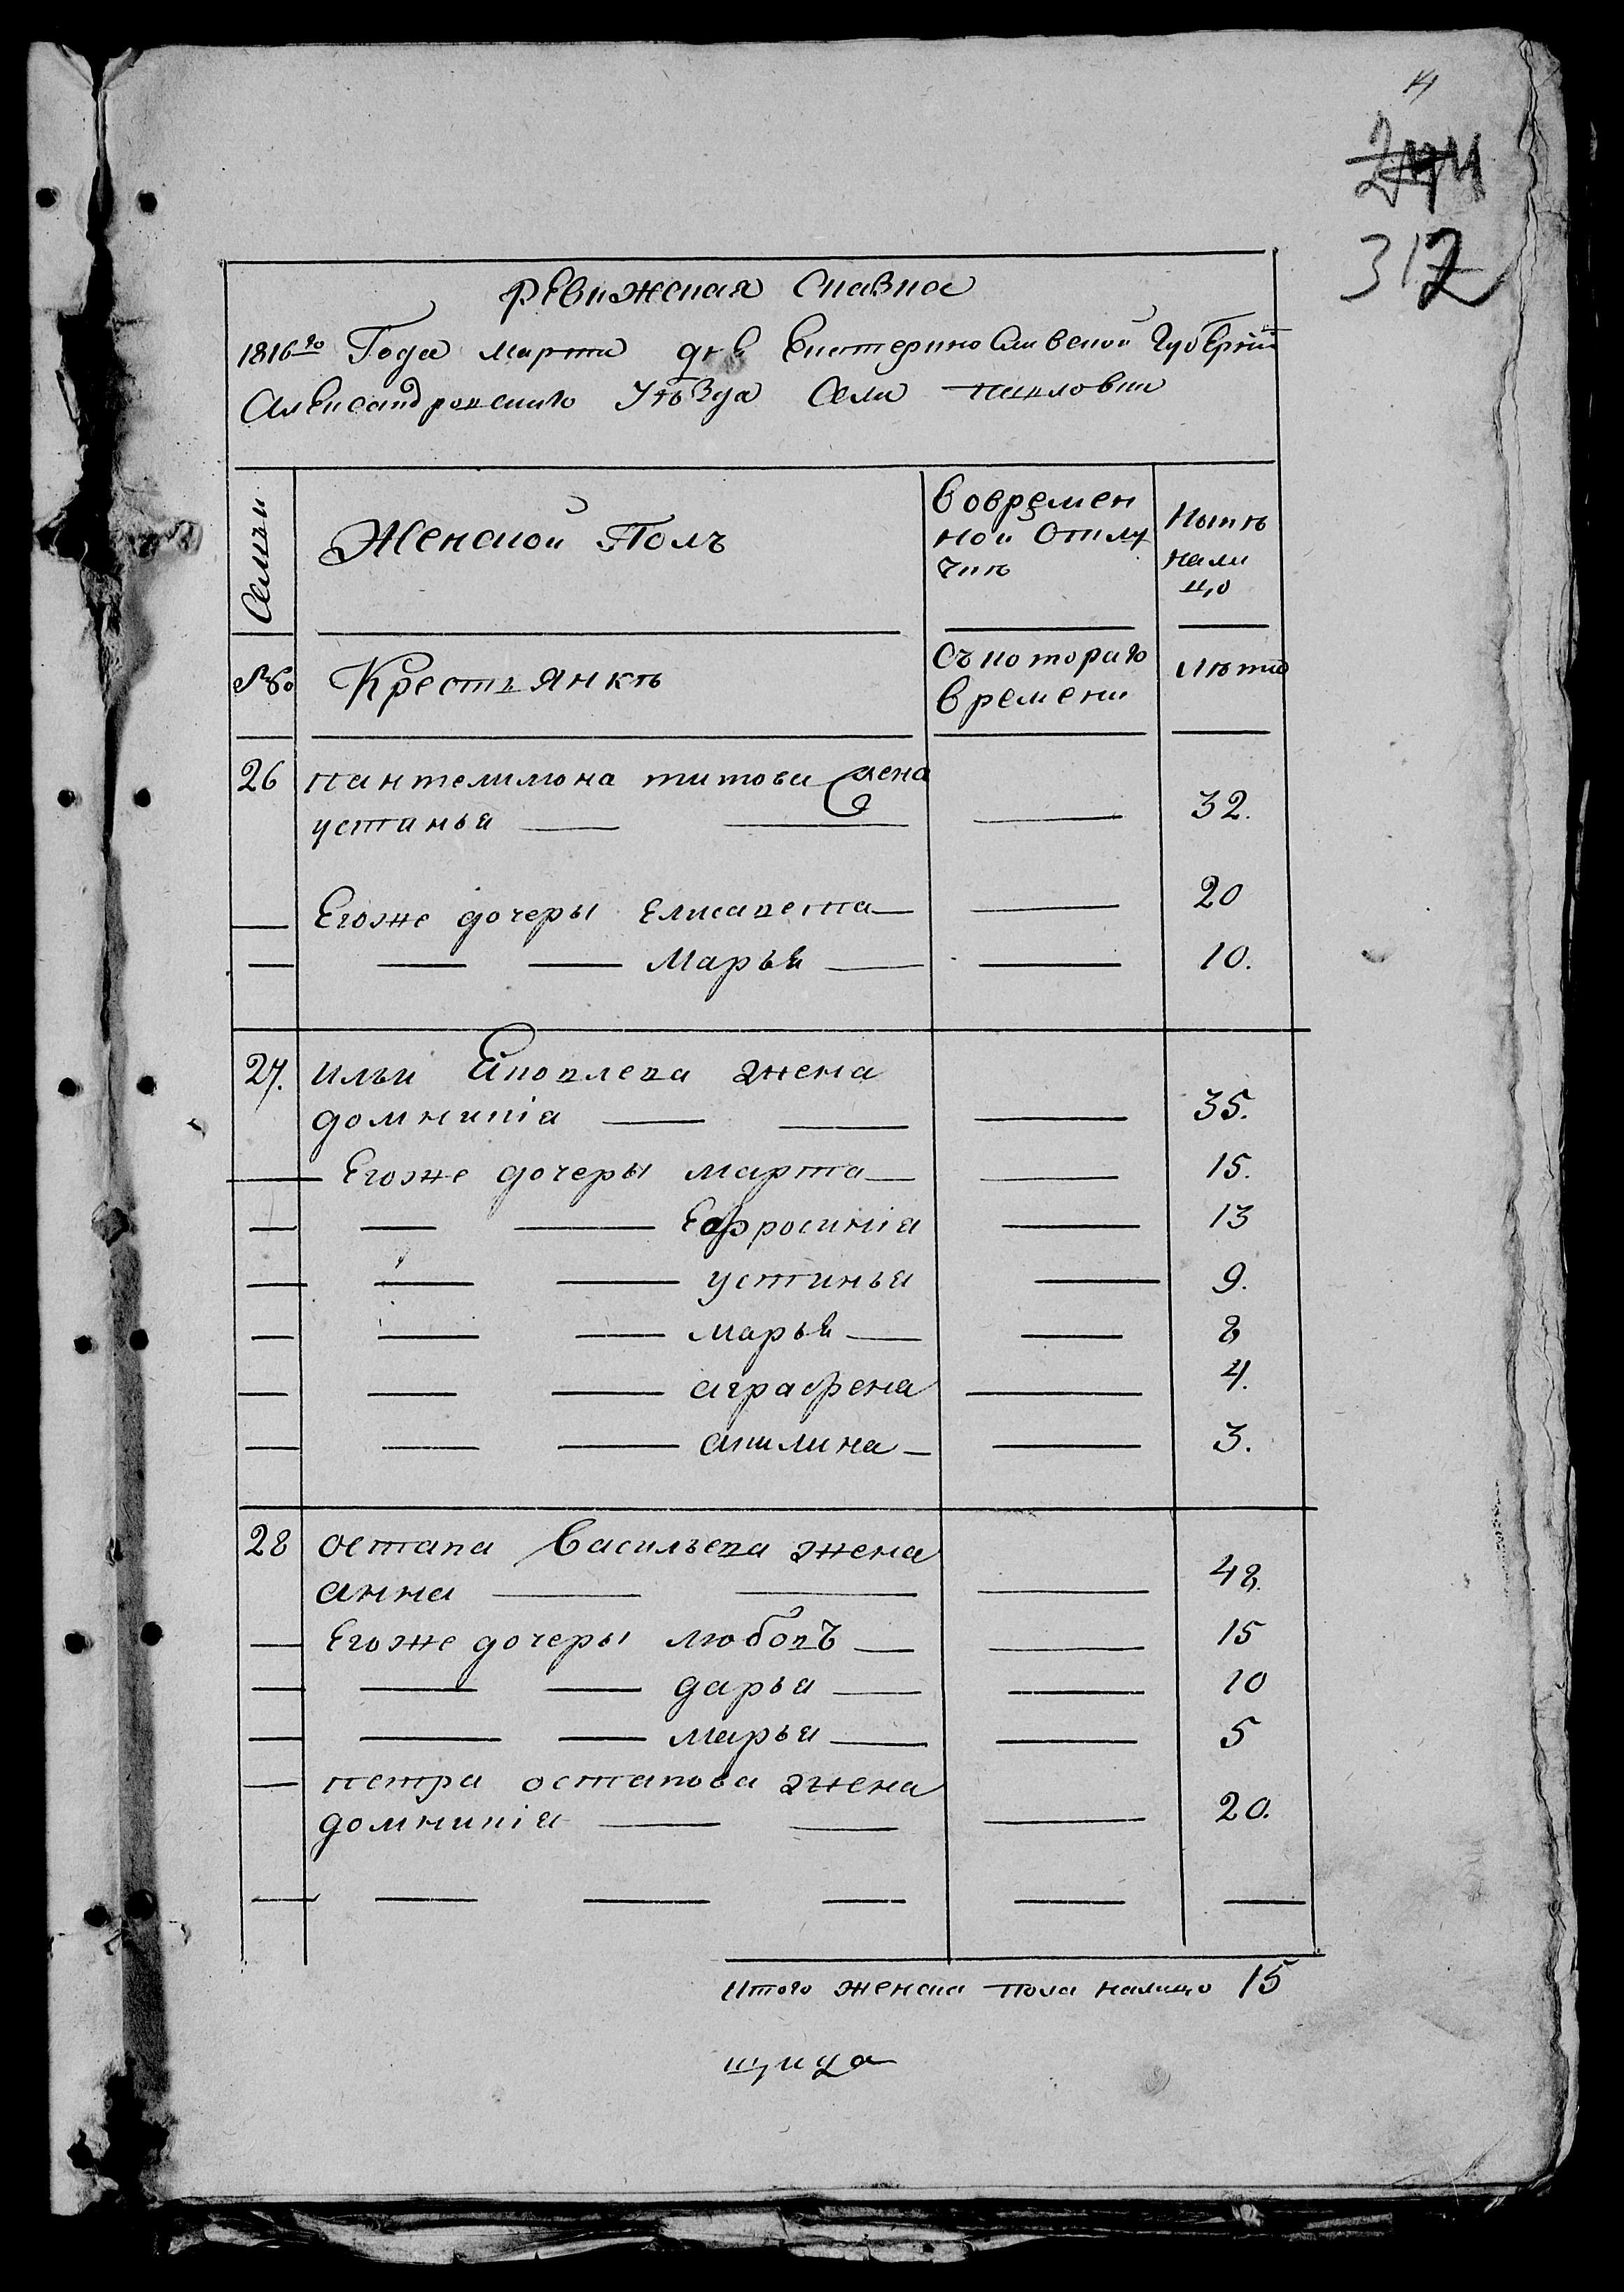 14
317
Ревижская Сказка
1816го Года Марта дня Екатеринославской Губернiи
Александровскаго Уѣзда Села
Семьи
Женской Полъ
вовремен
ной Отлу
чкѣ
Нынѣ
нали
цо
№
Крестьянкѣ
Съкотораго
времени
Лѣта
26 пантелимона титова жена
устинья — — — 32.
— Егоже дочеры Елисавета — — 20
— — — Марья — — 10.
27. ильи Яковлева жена
домникiа — — — 35.
— Егоже дочеры марта — — 15.
— — — Ефросинiа — 13
— — — устинья — 9.
— — — марья — — 8
— — — аграфена — 4.
— — — акилина — — 3.
28 остапа Васильева жена
анна — — — 48.
— Егоже дочеры любовъ — — 15
— — — дарья — — 10
— — — марья — — 5
— петра остапова жена
домникiа — — — 20.
— — — — — —
Итого женска пола налицо 15